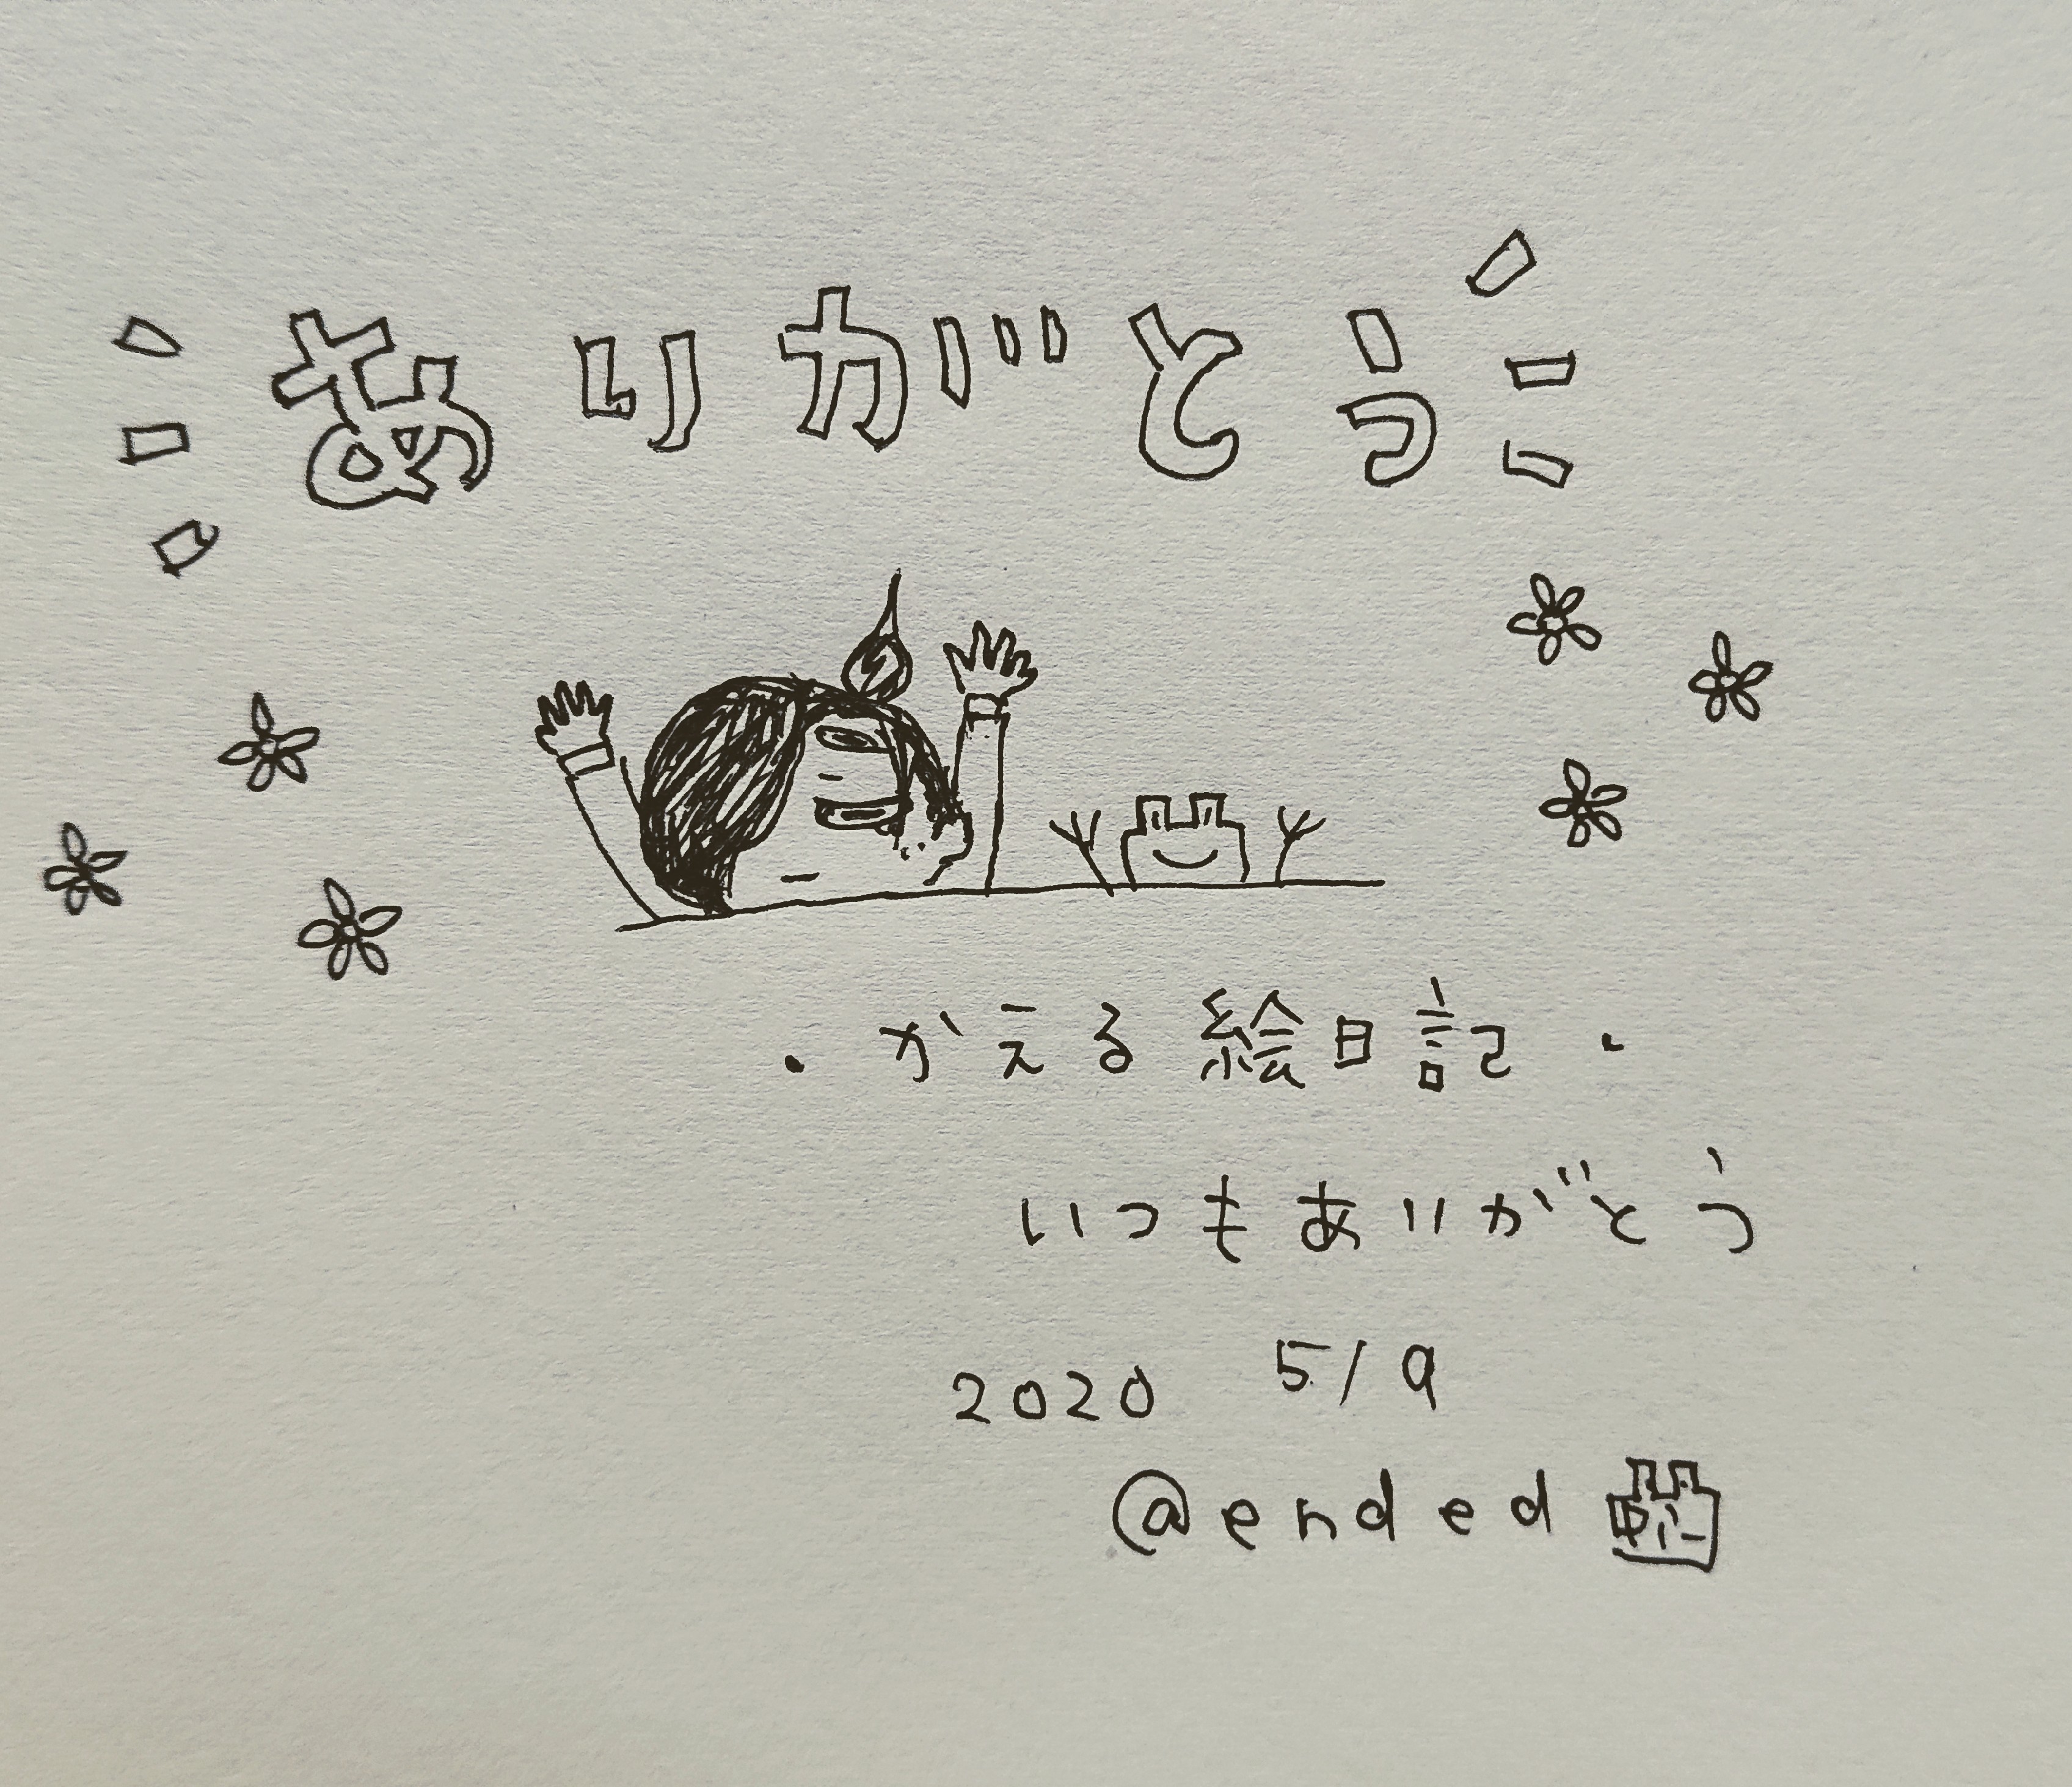 ありがとう
・かえる絵日記・
いつもありがとう
2020 5/9
@ended